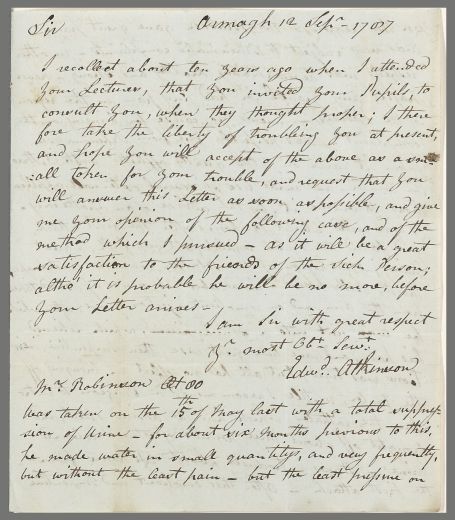 Sir Armagh 12 Sepr. 1787
I recollect about ten years ago when I attended
your Lectures, that you invited your Pupils, to
consult you, when they thought proper; I there
fore take the liberty of troubling you at present,
and hope you will accept of the above as a sm
-all token for your trouble, and request that you
will answer this Letter as soon as possible, and give
me your opinion of the following case, and of the
method which I pursued – as it will be a great
satisfaction to the friends of the sick Person;
altho it is probable he will be no more, before
your Letter arives –
I am Sir with great respect
Yr. most Obt. Servt.
Edwd. Atkinson
Mr. Robinson Æt 80
Was taken on the 15th of May last with a total suppres-
sion of Urine – for about six Months previous to this,
he made water in small quantitys, and very frequently,
but without the least pain – but the least pressure on